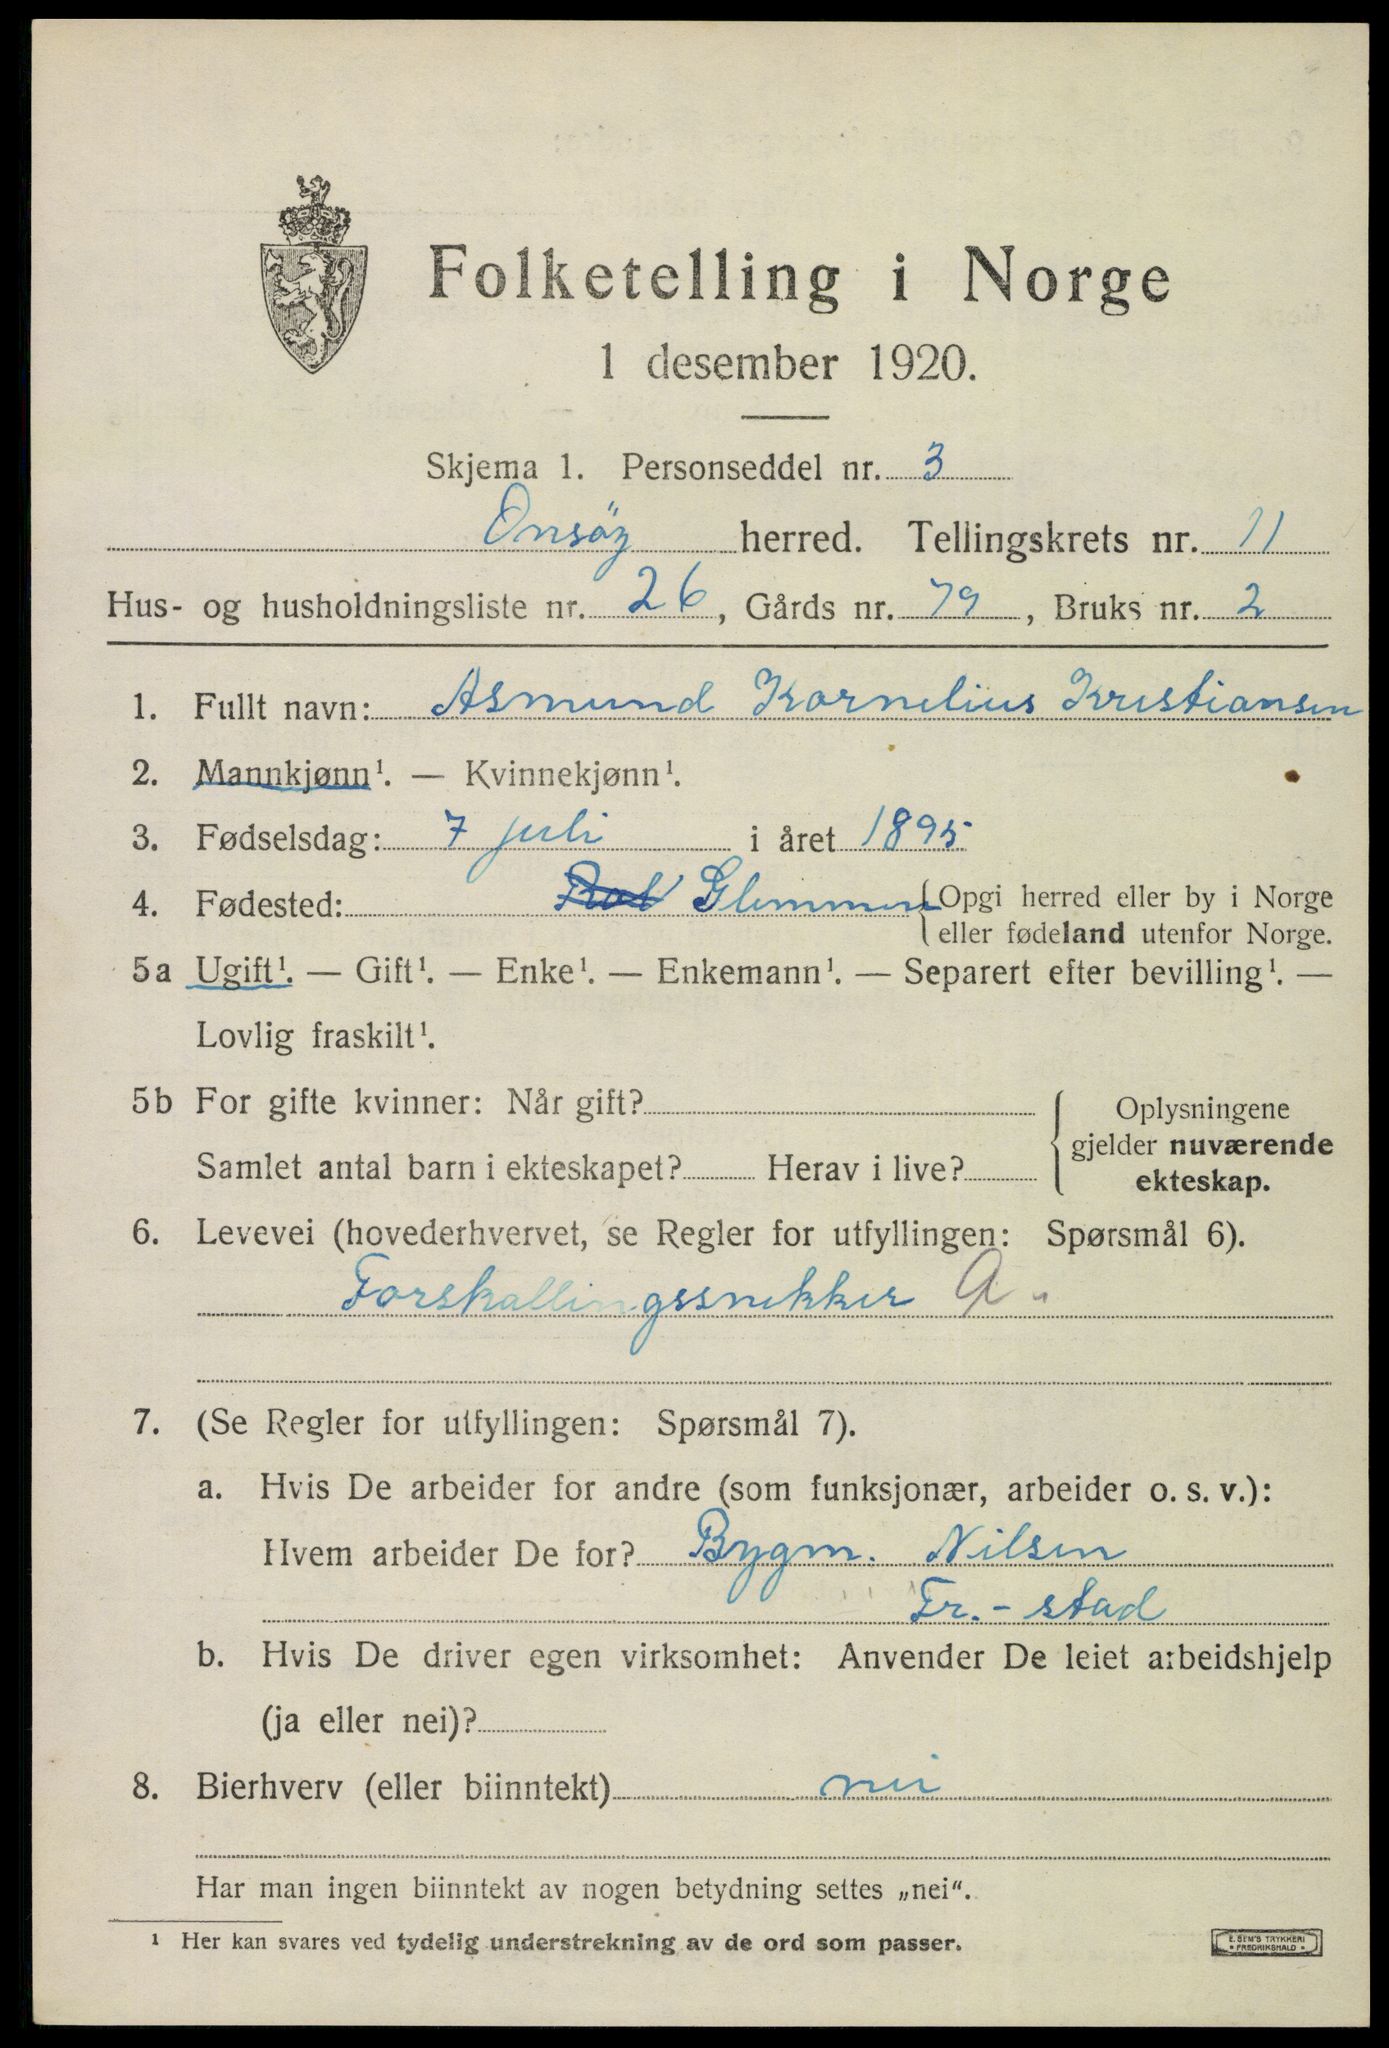 Folketelling i Norge
1 desember 1920.
Skjema 1. Personseddel nr. 3
Onsöy herred. Tellingskrets nr. 11
Hus- og husholdningsliste nr. 26, Gårds nr. 79, Bruks nr. 2
1. Fullt navn: Asmund Kornelius Kristiansen
2. Mannkjønn¹. — Kvinnekjønn¹.
3. Fødselsdag: 7 juli i året 1895
4. Fødested: Glemmen { Opgi herred eller by i Norge
eller fødeland utenfor Norge.
5a Ugift¹. — Gift¹. — Enke¹. — Enkemann¹. — Separert efter bevilling¹. —
Lovlig fraskilt¹.
5b For gifte kvinner: Når gift?
Samlet antal barn i ekteskapet? Herav i live?
Oplysningene
gjelder nuværende
ekteskap.
6. Levevei (hovederhvervet, se Regler for utfyllingen: Spørsmål 6).
Forskallingssnekker a.
7. (Se Regler for utfyllingen: Spørsmål 7).
a. Hvis De arbeider for andre (som funksjonær, arbeider o. s. v.):
Hvem arbeider De for? Bygm. Nilsen
Fr.-stad
b. Hvis De driver egen virksomhet: Anvender De leiet arbeidshjelp
(ja eller nei)?
8. Bierhverv (eller biinntekt) nei
Har man ingen biinntekt av nogen betydning settes „nei“.
¹ Her kan svares ved tydelig understrekning av de ord som passer.
E. SEM'S TRYKKERI
• FREDRIKSHALD •